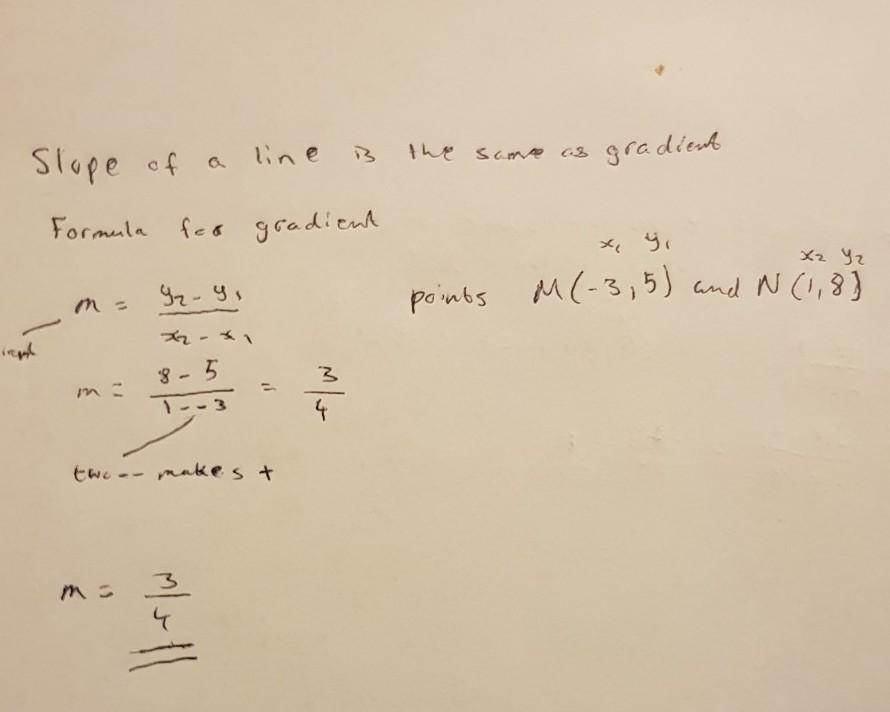 Slope of a line is the same as gradient
Formula for gradient
x₁ y₁ x₂ y₂
points M(-3,5) and N(1,8)
m = y₂ - y₁ / x₂ - x₁
m = 8 - 5 / 1 - - 3 = 3 / 4
two -- makes +
m = 3 / 4